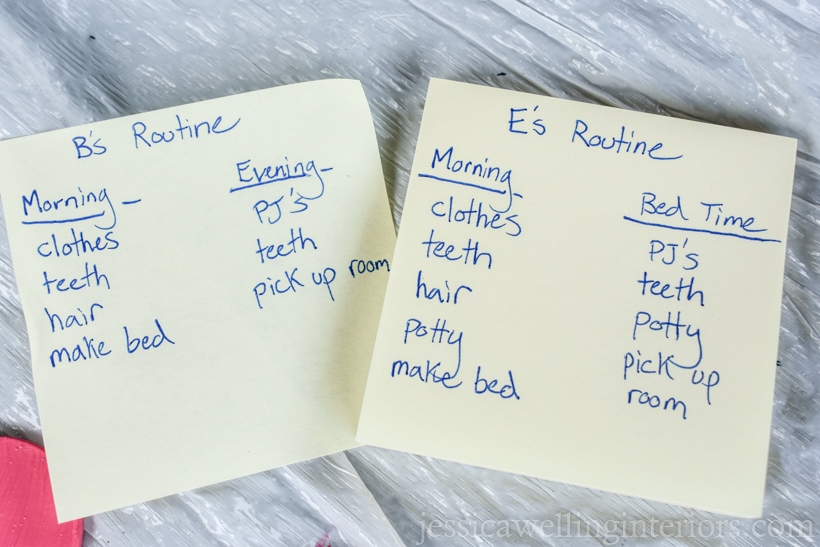 B's Routine
Morning -
clothes
teeth
hair
make bed
Evening -
PJ's
teeth
pick up room
E's Routine
Morning -
clothes
teeth
hair
potty
make bed
Bed Time
PJ's
teeth
potty
pick up
room
jessicawellinginteriors.com